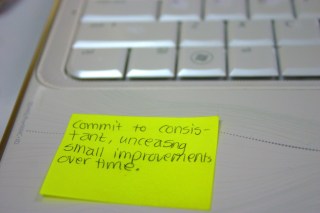 Commit to consis-
tant, unceasing
small improvements
over time.